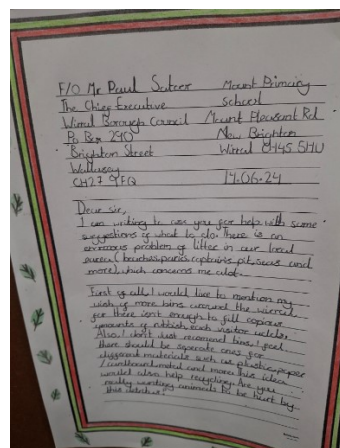 F/O Mr Paul Satoor
The Chief Executive
Wirral Borough Council
Po Box 290
Brighton Street
Wallasey
CH27 9FQ
Mount Primary
School
Mount Pleasant Rd
New Brighton
Wirral CH45 5HU
14.06.24
Dear sir,
I am writing to ask you for help with some
suggestions of what to do. There is an
enormous problem of litter in our local
area (beaches, parks, captains pit, seas and
more), which concerns me alot.
First of all, I would like to mention my
wish of more bins around the wirral
for there isn't enough to fill copious
amounts of rubbish each visitor holds.
Also, I don't just recomend bins, I feel
there should be separate ones for
different materials such as plastic, paper
/cardboard, metal and more. This idea
would also help recycling. Are you
really wanting animals to be hurt by
this